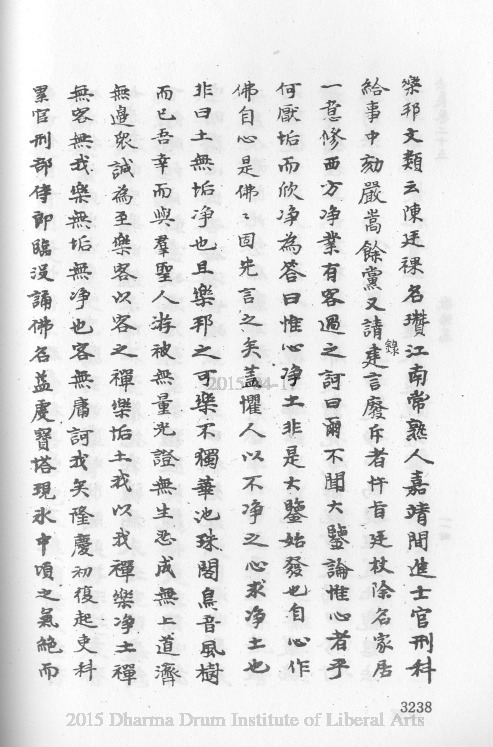 樂邦文類云陳廷祼名瓚江南常熟人嘉靖間進士官刑科
給事中劾嚴嵩餘黨又請建言廢斥者忤旨廷杖除名家居
錄
一意修西方淨業有客過之訶曰爾不聞大鑒論惟心者乎
何厭垢而欣净為答曰惟心淨土非是大鑒始發也自心作
佛自心是佛〻固先言之矣蓋懼人以不净之心求净土也
非曰土無垢净也且樂邦之可樂不獨華池珠閣鳥音風樹
而已吾幸而與羣聖人游被無量光證無生忍成無上道濟
無邊衆誠為至樂客以客之禪樂垢土我以我禪樂净土禪
無客無我樂無垢無净也客無庸訶我矣隆慶初復起吏科
累官刑部侍郎臨没誦佛名益虔寶塔現水中頃之氣絶而
3238
2015-04-17
2015 Dharma Drum Institute of Liberal Arts